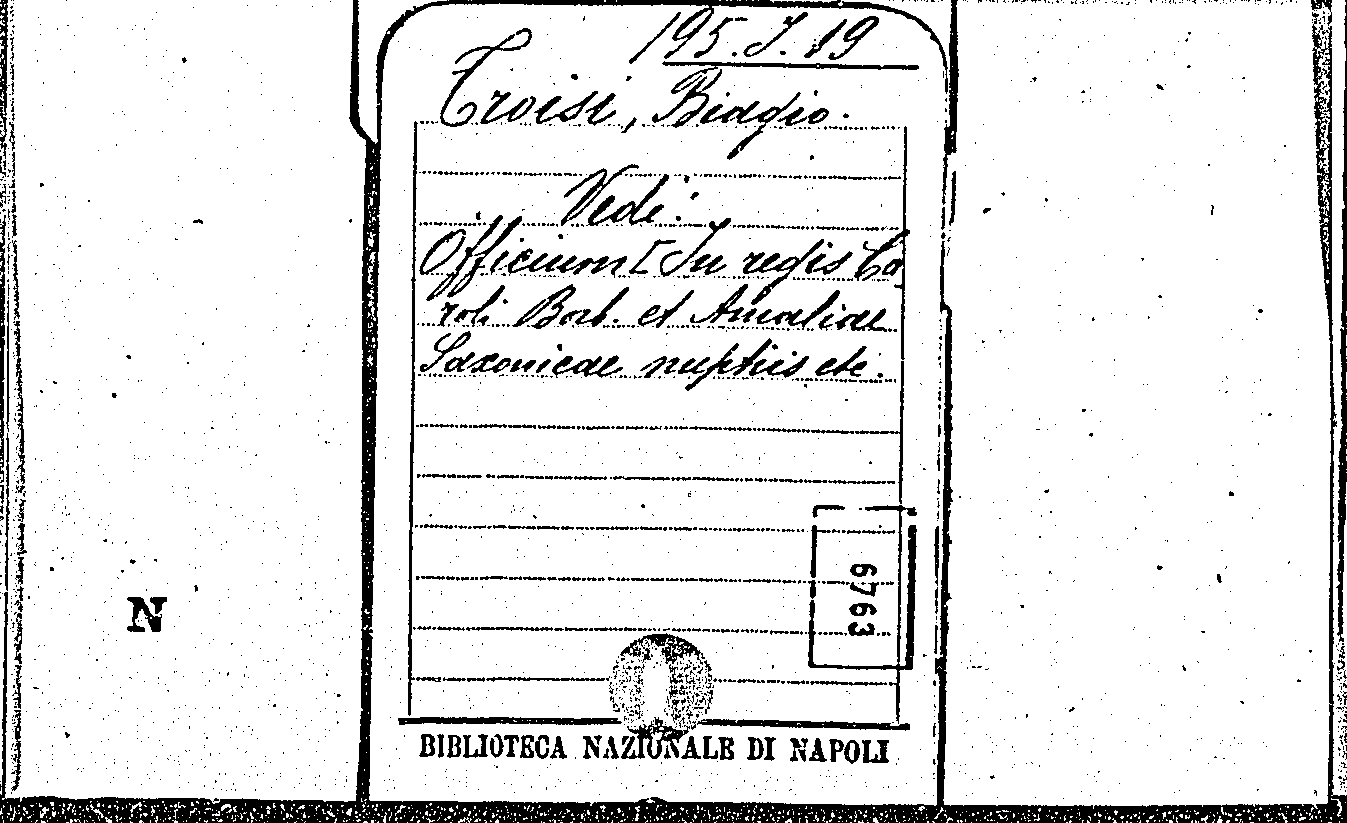 195.J.19
Troisi, Biagio.
Vedi:
Officium [In regis Ca
roli Borb. et Amaliae
Saxonicae nuptiis etc.
6763
N
BIBLIOTECA NAZIONALE DI NAPOLI